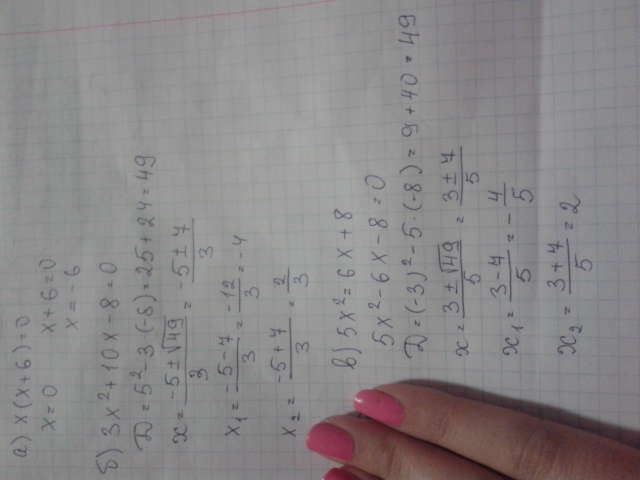 а) x(x+6)=0
x=0 x+6=0
x=-6
б) 3x²+10x-8=0
D=5²-3·(-8)=25+24=49
x=(-5±√49)/3=(-5±7)/3
x₁=(-5-7)/3=(-12)/3=-4
x₂=(-5+7)/3=2/3
в) 5x²=6x+8
5x²-6x-8=0
D=(-3)²-5·(-8)=9+40=49
x=(3±√49)/5=(3±7)/5
x₁=(3-7)/5=-4/5
x₂=(3+7)/5=2